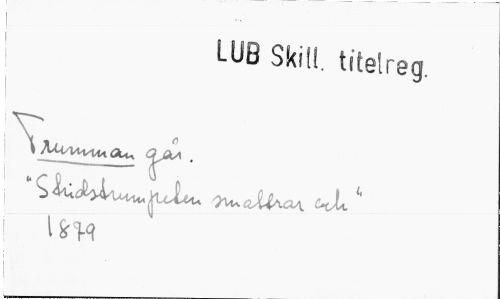 LUB Skill. titelreg.
Trumman går.
"Stridstrumpeten smattrar och"
1879